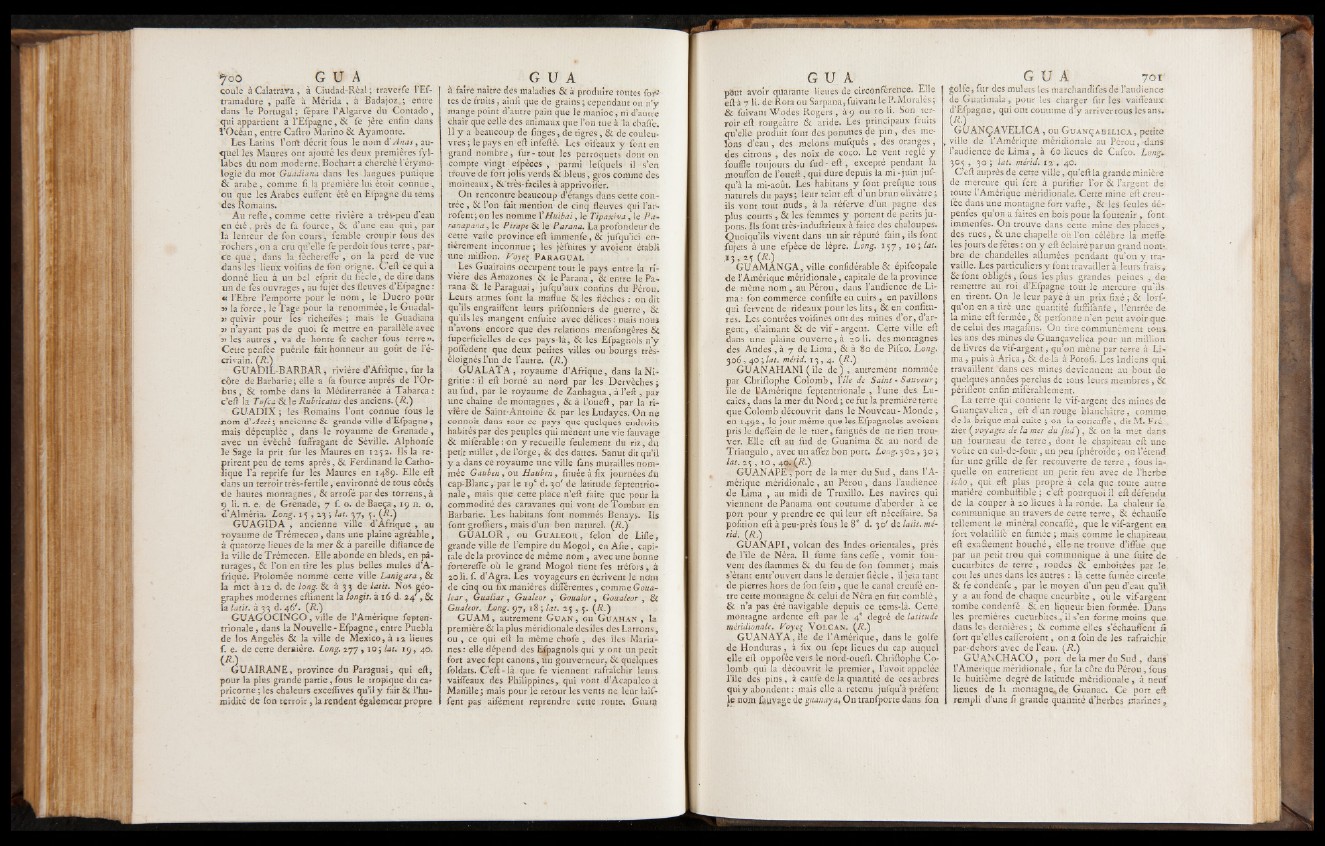 700 G U A
coule à Calatrava, à Ciudad-Réal; traverse l'Es-
tramadure, passe à Mérida, à Badajoz; entre
dans le Portugal; sépare l'Algarve du Contado,
qui appartient à l'Espagne, & se jète enfin dans
l'Océan, entre Castro Marino & Ayamonte.
Les Latins l'ont décrit sous le nom d'Anas, au-
quel les Maures ont ajouté les deux premières syl-
labes du nom moderne. Bochart a cherché l'étymo-
logie du mot Guadiana dans les langues punique
& arabe, comme si la première lui étoit connue,
ou que les Arabes eussent été en Espagne du tems
des Romains.
Au reste, comme cette rivière a très-peu d'eau
en été, près de sa source, & d'une eau qui, par
la lenteur de son cours, semble croupir sous des
rochers, on a cru qu'elle se perdoit sous terre, par-
ce que, dans la sècheresse, on la perd de vue
dans les lieux voisins de son origine. C'est ce qui a
donné lieu à un bel esprit du siècle, de dire dans
un de ses ouvrages, au sujet des fleuves d'Espagne:
« l'Ebre l'emporte pour le nom, le Duero pour
» la force, le Tage pour la renommée, le Guadal-
» quivir pour les richesses; mais le Guadiana
» n'ayant pas de quoi se mettre en parallèle avec
» les autres, va de honte se cacher sous terre ».
Cette pensée puérile fait honneur au goût de l'é-
crivain. (R.)
GUADIL-BARBAR, rivière d'Afrique, sur la
côte de Barbarie; elle a sa source auprès de l'Or-
bus, & tombe dans la Méditerranée à Tabarca:
c'est la Tusca & le Rubricatus des anciens. (R.)
GUADIX; les Romains l'ont connue sous le
nom d'Acci; ancienne & grande ville d'Espagne,
mais dépeuplée, dans le royaume de Grenade,
avec un évêché suffragant de Séville. Alphonse
le Sage la prit sur les Maures en 1252. Ils la re-
prirent peu de tems après, & Ferdinand le Catho-
lique l'a reprise sur les Maures en 1489. Elle est
dans un terroir très-fertile, environné de tous côtés
de hautes montagnes, & arrosé par des torrens, à
9 li. n. e. de Grenade, 7 s. o. de Baeça, 19 n. o.
d'Alméria. Long. 15, 23; lat. 37, 5. (R.)
GUAGIDA, ancienne ville d'Afrique, au
royaume de Trémecen, dans une plaine agréable,
à quatorze lieues de la mer & à pareille distance de
la ville de Trémecen. Elle abonde en bleds, en pâ-
turages, & l'on en tire les plus belles mules d'A-
frique. Ptolomée nomme cette ville Lanigara, &
la met à 12 d. de long. & à 33 de latit. Nos géo-
graphes modernes estiment la longit. à 16 d. 24', &
la latit. à 33 d. 46'. (R.)
GUAGOCINGO, ville de l'Amérique septen-
trionale, dans la Nouvelle-Espagne, entre Puebla
de los Angelés & la ville de Mexico, à 12 lieues
s. e. de cette dernière. Long. 277, 10; lat. 19, 40.
(R.)
GUAIRANE, province du Paraguai, qui est,
pour la plus grande partie, sous le tropique du ca-
pricorne; les chaleurs excessives qu'il y fait & l'hu-
midité de son terroir, la rendent également propre
G U A
à faire naître des maladies & à produire toutes sor-
tes de fruits, ainsi que de grains; cependant on n'y
mange point d'autre pain que le manioc, ni d'autre
chair que celle des animaux que l'on tue à la chasse.
Il y a beaucoup de singes, de tigres, & de couleu-
vres; le pays en est infesté. Les oiseaux y sont en
grand nombre, sur-tout les perroquets dont on
compte vingt espèces, parmi lesquels il s'en
trouve de fort jolis verds & bleus, gros comme des
moineaux, & très-faciles à apprivoiser.
On rencontre beaucoup d'étangs dans cette con-
trée, & l'on fait mention de cinq fleuves qui l'ar-
rosent; on les nomme l'Huibai, le Tipaniva, le Pa-
ranapana, le Pirape & le Parana. La profondeur de
cette vaste province est immense, & jusqu'ici en-
tièrement inconnue; les jésuites y avoient établi
une mission. Voyez PARAGUAI.
Les Guairains occupent tout le pays entre la ri-
vière des Amazones & le Parana, & entre le Pa-
rana & le Paraguai, jusqu'aux confins du Pérou.
Leurs armes sont la massue & les flèches: on dit
qu'ils engraissent leurs prisonniers de guerre, &
qu'ils les mangent ensuite avec délices: mais nous
n'avons encore que des relations mensongères &
superficielles de ces pays-là, & les Espagnols n'y
possèdent que deux petites villes ou bourgs très-
éloignés l'un de l'autre. (R.)
GUALATA, royaume d'Afrique, dans la Ni-
gritie: il est borné au nord par les Dervèches;
au sud, par le royaume de Zanhagna, à l'est, par
une chaine de montagnes, & à l'ouest, par la ri-
vière de Saint-Antoine & par les Ludayes. On ne
connoit dans tout ce pays que quelques endroits
habités par des peuples qui mènent une vie sauvage
& misérable: on y recueille seulement du riz, du
petit millet, de l'orge, & des dattes. Sanut dit qu'il
y a dans ce royaume une ville sans murailles nom-
mée Gauben, ou Hauben, située à six journées du
cap-Blanc, par le 19e d. 30' de latitude septentrio-
nale, mais que cette place n'est faite que pour la
commodité des caravanes qui vont de Tombut en
Barbarie. Les habitans sont nommés Benays. Ils
sont grossiers, mais d'un bon naturel. (R.)
GUALOR, ou GUALEOR, selon de Lisle,
grande ville de l'empire du Mogol, en Asie, capi-
tale de la province de même nom, avec une bonne
forteresse où le grand Mogol tient ses trésors, à
20 li. s. d'Agra. Les voyageurs en écrivent le nom
de cinq ou six manières différentes, comme Goua-
lear, Gualiar, Gualeor, Goualor, Goualeor, &
Gualeor. Long. 97, 18; lat. 25, 5. (R.)
GUAM, autrement GUAN, ou GUAHAN, la
première & la plus méridionale des iles des Larrons,
ou, ce qui est la même chose, des îles Maria-
nes: elle dépend des Espagnols qui y ont un petit
fort avec sept canons, un gouverneur, & quelques
soldats. C'est-là que se viennent rafraîchir leurs
vaisseaux des Philippines, qui vont d'Acapulco à
Manille; mais pour le retour les vents ne leur lais-
sent pas aisément reprendre cette route. Guam
G U A
peut avoir quarante lieues de circonférence. Elle
est à 7 li. de Rora ou Sarpana, suivant le P. Moralès;
& suivant Wodes Rogers, à 9 ou 10 li. Son ter-
roir est rougeâtre & aride. Les principaux fruits
qu'elle produit sont des pommes de pin, des me-
lons d'eau, des melons musqués, des oranges,
des citrons, des noix de coco. Le vent réglé y
souffle toujours du sud-est, excepté pendant la
mousson de l'ouest, qui dure depuis la mi-juin jus-
qu'à la mi-août. Les habitans y sont presque tous
naturels du pays; leur teint est d'un brun olivâtre;
ils vont tout nuds, à la réserve d'un pagne des
plus courts, & les femmes y portent de petits ju-
pons. Ils sont très-industrieux à faire des chaloupes.
Quoiqu'ils vivent dans un air réputé sain, ils sont
sujets à une espèce de lèpre. Long. 157, 10; lat.
13, 25 (R.)
GUAMANGA, ville considérable & épiscopale
de l'Amérique méridionale, capitale de la province
de même nom, au Pérou, dans l'audience de Li-
ma: son commerce consiste en cuirs, en pavillons
qui servent de rideaux pour les lits, & en confitu-
res. Les contrées voisines ont des mines d'or, d'ar-
gent, d'aimant & de vif-argent. Cette ville est
dans une plaine ouverte, à 20 li. des montagnes
des Andes, à 7 de Lima, & à 80 de Pisco. Long.
306, 40; lat. mérid. 13, 4. (R.)
GUANAHANI (île de), autrement nommée
par Christophe Colomb, l'île de Saint-Sauveur;
île de l'Amérique septentrionale, l'une des Lu-
caies, dans la mer du Nord; ce fut la première terre
que Colomb découvrit dans le Nouveau-Monde,
en 1492, le jour même que les Espagnols avoient
pris le dessein de le tuer, fatigués de ne rien trou-
ver. Elle est au sud de Guanima & au nord de
Triangulo, avec un assez bon port. Long. 302, 30;
lat. 25, 10, 40. (R.)
GUANAPE, port de la mer du Sud, dans l'A-
mérique méridionale, au Pérou, dans l'audience
de Lima, au midi de Truxillo. Les navires qui
viennent de Panama ont coutume d'aborder à ce
port pour y prendre ce qui leur est nécessaire. Sa
position est à peu-près sous le 8e d. 30' de latit. mé-
rid. (R.)
GUANAPI, volcan des Indes orientales, près
de l'île de Néra. Il fume sans cesse, vomit sou-
vent des flammes & du feu de son sommet; mais
s'étant entr'ouvert dans le dernier siècle, il jeta tant
de pierres hors de son sein, que le canal creusé en-
tre cette montagne & celui de Néra en fut comblé,
& n'a pas été navigable depuis ce tems-là. Cette
montagne ardente est par le 4e degré de latitude
méridionale. Voyez VOLCAN. (R.)
GUANAYA, île de l'Amérique, dans le golfe
de Honduras, à six ou sept lieues du cap auquel
elle est opposée vers le nord-ouest. Christophe Co-
lomb qui la découvrit le premier, l'avoit appelée
l'île des pins, à cause de la quantité de ces arbres
qui y abondent: mais elle a retenu jusqu'à présent
le nom sauvage de guanaya. On transporte dans son
G U A 701
golfe, sur des mulets les marchandises de l'audience
de Guatimala, pour les charger sur les vaisseaux
d'Espagne, qui ont coutume d'y arriver tous les ans.
(R.)
GUANÇAVELICA, ou GUANÇABILICA, petite
ville de l'Amérique méridionale au Pérou, dans
l'audience de Lima, à 60 lieues de Cusco. Long.
305, 30; lat. mérid. 12, 40.
C'est auprès de cette ville, qu'est la grande minière
de mercure qui sert à purifier l'or & l'argent de
toute l'Amérique méridionale. Cette mine est creu-
sée dans une montagne fort vaste, & les seules dé-
penses qu'on a faites en bois pour la soutenir, sont
immenses. On trouve dans cette mine des places,
des rues, & une chapelle où l'on célèbre la messe
les jours de fêtes: on y est éclairé par un grand nom-
bre de chandelles allumées pendant qu'on y tra-
vaille. Les particuliers y font travailler à leurs frais,
& sont obligés, sous les plus grandes peines, de
remettre au roi d'Espagne tout le mercure qu'ils
en tirent. On le leur paye à un prix fixé; & lors-
qu'on en a tiré une quantité suffisante, l'entrée de
la mine est fermée, & personne n'en peut avoir que
de celui des magasins. On tire communément tous
les ans des mines de Guançavelica pour un million
de livres de vif-argent, qu'on mène par terre à Li-
ma, puis à Arica, & de-là à Potosi. Les indiens qui
travaillent dans ces mines deviennent au bout de
quelques années perclus de tous leurs membres, &
périssent enfin misérablement.
La terre qui contient le vif-argent des mines de
Guançavelica, est d'un rouge blanchâtre, comme
de la brique mal cuite; on la concasse, dit M. Fré-
zier (voyages de la mer du sud), & on la met dans
un fourneau de terre, dont le chapiteau est une
voûte en cul-de-four, un peu sphéroïde; on l'étend
sur une grille de fer recouverte de terre, sous la-
quelle on entretient un petit feu avec de l'herbe
icho, qui est plus propre à cela que toute autre
matière combustible; c'est pourquoi il est défendu
de la couper à 20 lieues à la ronde. La chaleur se
communique au travers de cette terre, & échauffe
tellement le minéral concassé, que le vif-argent en
sort volatilisé en fumée; mais comme le chapiteau
est exactement bouché, elle ne trouve d'issue que
par un petit trou qui communique à une suite de
cucurbites de terre, rondes & emboitées par le
cou les unes dans les autres: là cette fumée circule
& se condense, par le moyen d'un peu d'eau qu'il
y a au fond de chaque cucurbite, où le vif-argent
tombe condensé & en liqueur bien formée. Dans
les premières cucurbites, il s'en forme moins que
dans les dernières; & comme elles s'échauffent si
fort qu'elles casseroient, on a soin de les rafraichir
par-dehors avec de l'eau. (R.)
GUANCHACO, port de la mer du Sud, dans
l'Amérique méridionale, sur la côte du Pérou, sous
le huitième degré de latitude méridionale, à neuf
lieues de la montagne de Guanac. Ce port est
rempli d'une si grande quantité d'herbes marines,